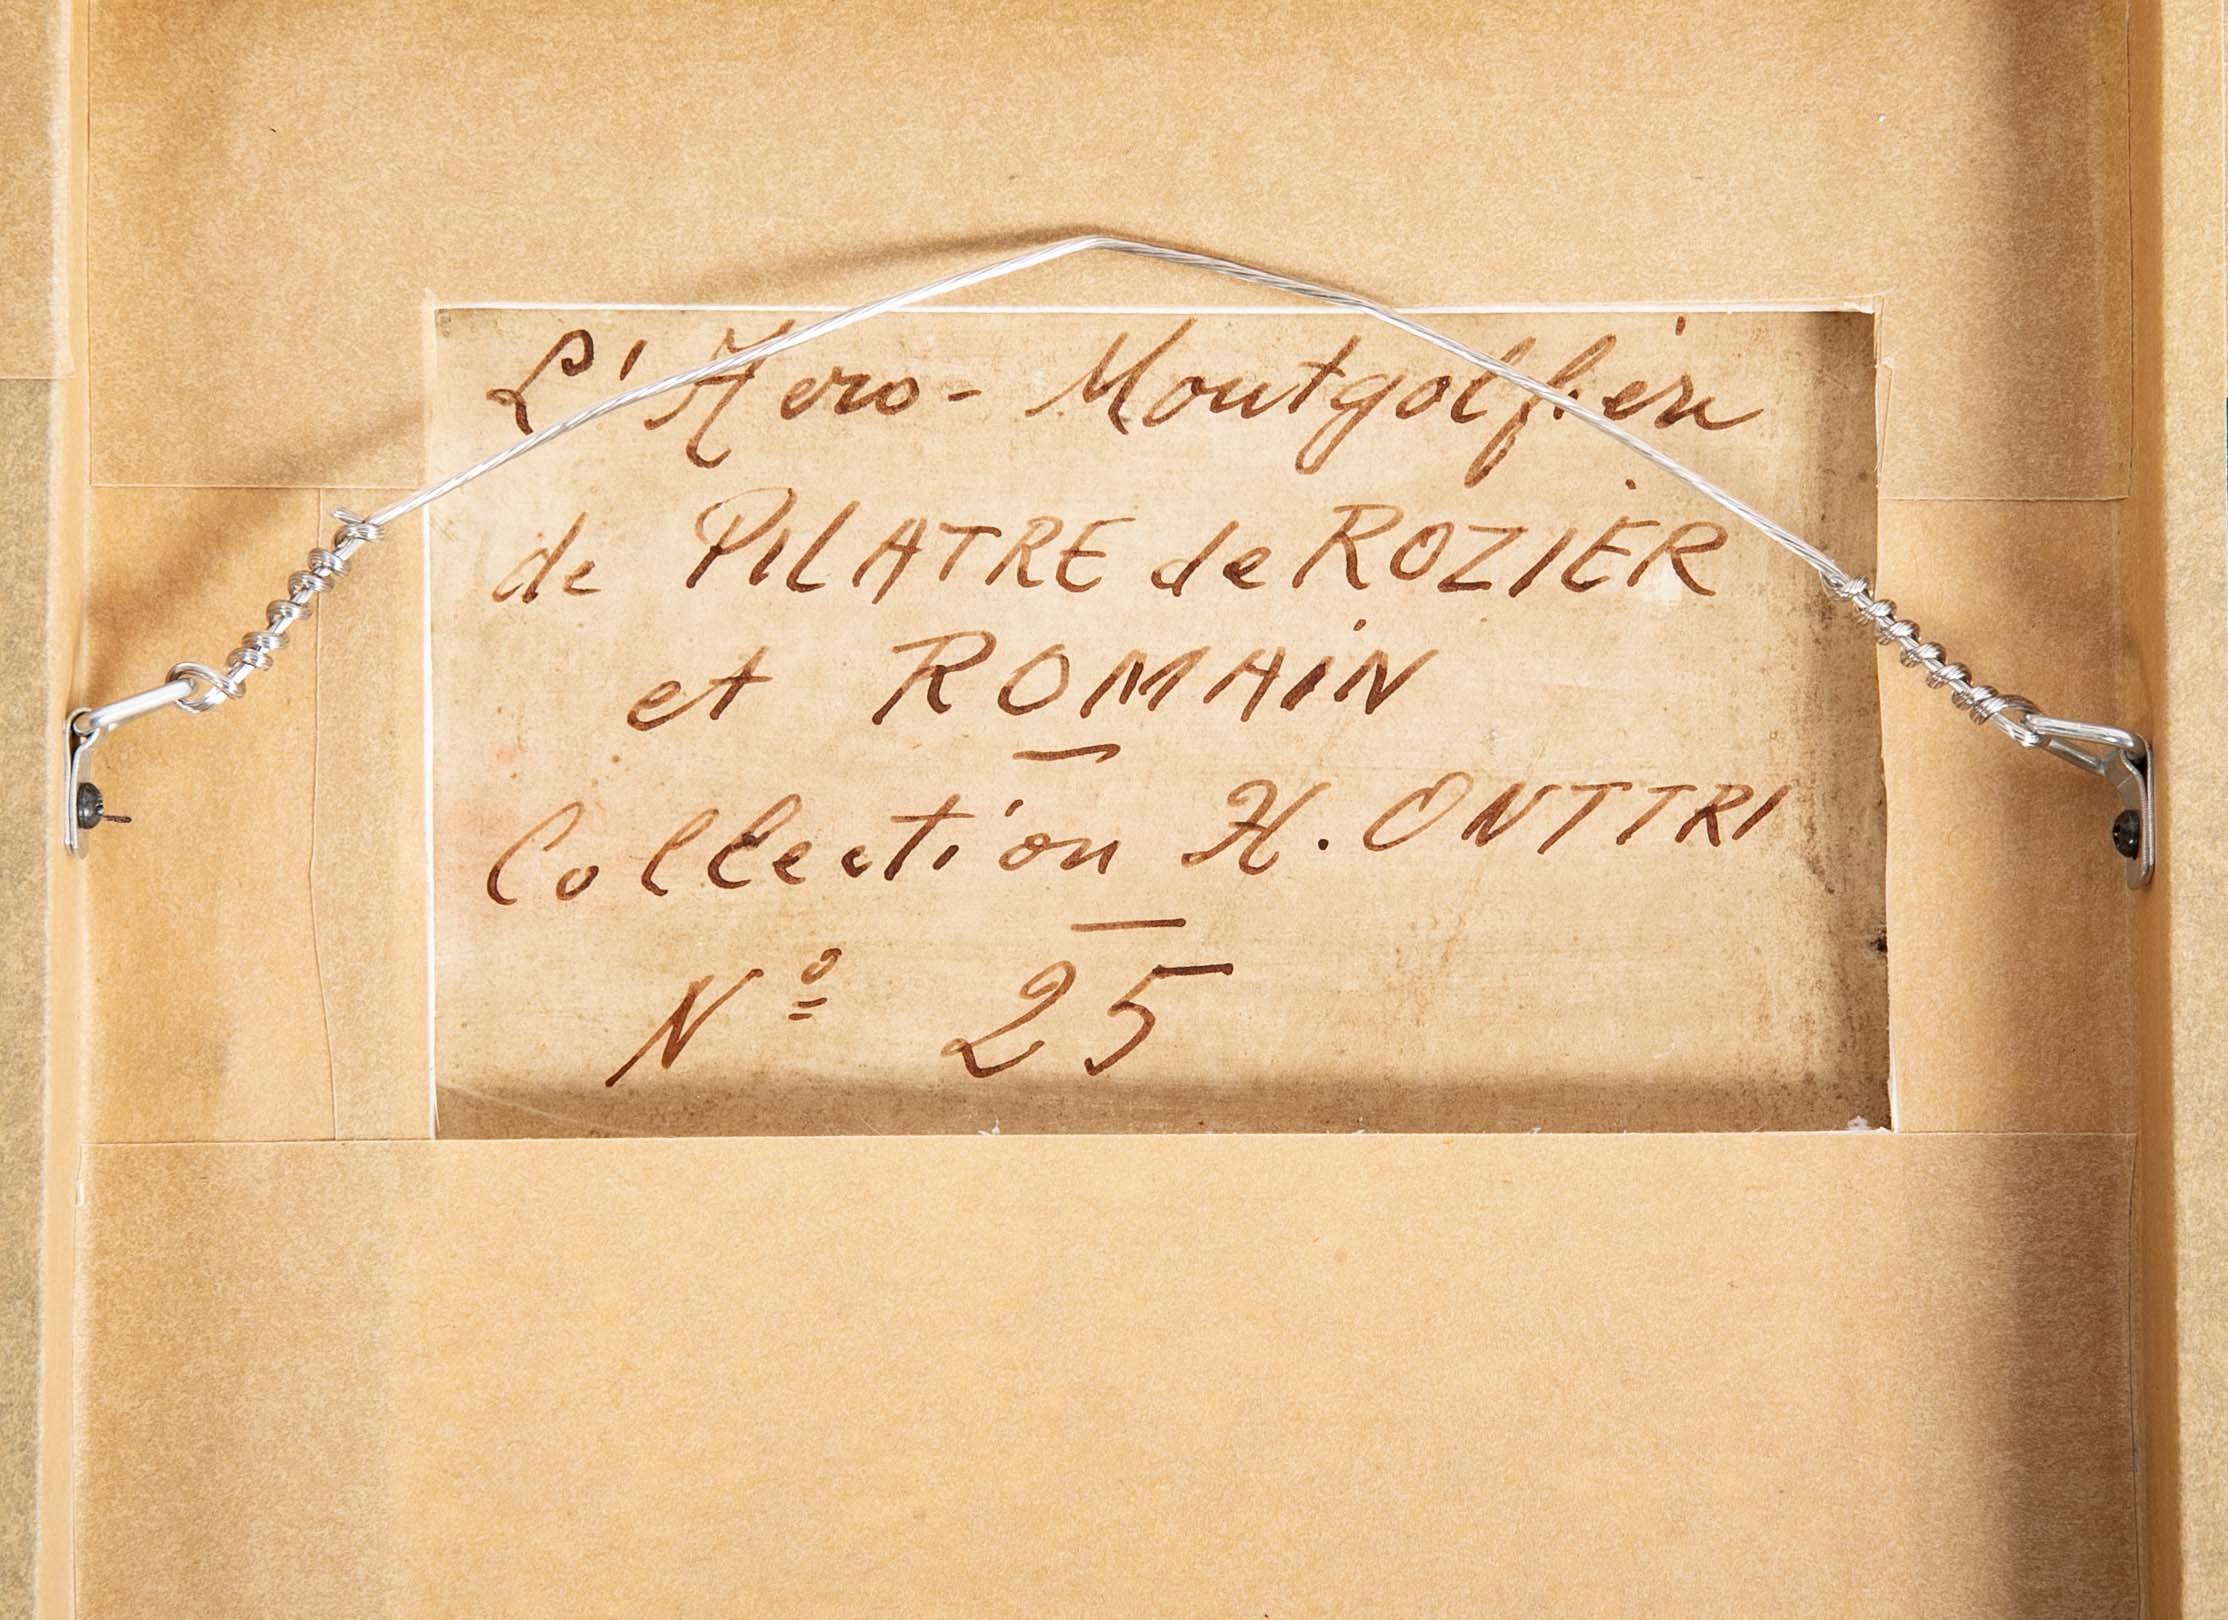 L'Aero-Montgolfière
de PILATRE de ROZIER
et ROMAIN
Collection H. ONTTRI
Nº 25